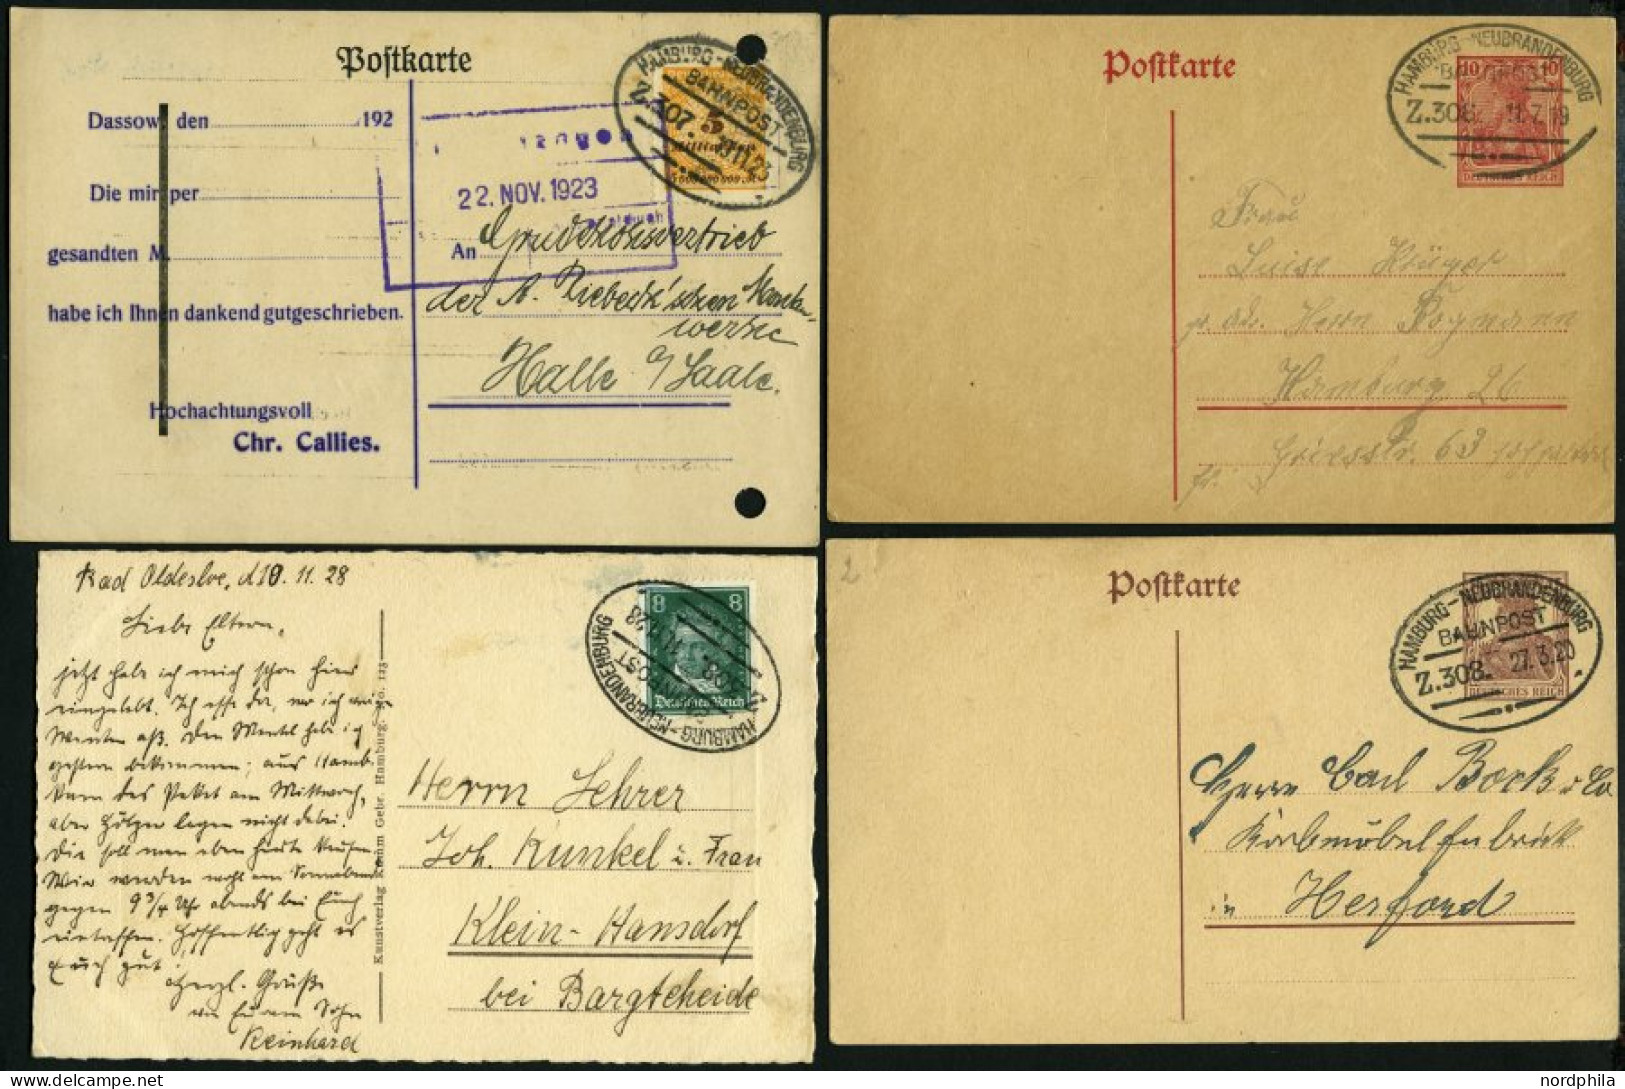 Postkarte
Dassow, den 192
Die mir per
gesandten M.
habe ich Ihnen dankend gutgeschrieben.
Hochachtungsvoll
Chr. Callies.
22. NOV. 1923
An Grudekoksvertrieb
der A. Riebeck'schen Montan-
werke
Halle a/Saale.
HAMBURG-NEUBRANDENBURG
BAHNPOST
Z.307. 19.11.23
5
Postkarte
10 10
DEUTSCHES REICH
HAMBURG-NEUBRANDENBURG
BAHNPOST
Z.308. 11.7.19
Frau
Luise Krüger
Herrn
Hamburg 26
63
Bad Oldesloe, d. 10. 11. 28
Liebe Eltern,
jetzt habe ich mich schon hier
eingelebt. Ich esse da, wo
aß. Den Mantel habe ich
gestern bekommen; aus Hamb.
kam das Paket am Mittwoch,
aber lagen nicht dabei.
Die soll man eben
Wir werden wohl am Sonnabend
gegen 9 3/4 Uhr abends bei Euch
eintreffen. Hoffentlich geht es
Euch gut.
Herzl. Grüße
von Eurem Sohn
Reinhard
Kunstverlag Gebr. Hamburg. No. 123
8 8
Deutsches Reich
HAMBURG-NEUBRANDENBURG
BAHNPOST
Herrn Lehrer
Joh. Kunkel u. Frau
Klein-Hansdorf
bei Bargteheide
2
Postkarte
DEUTSCHES REICH
HAMBURG-NEUBRANDENBURG
BAHNPOST
Z.308. 27.3.20
Herrn Carl Bock & Co
Korbmöbelfabrik
in Herford
nordphila